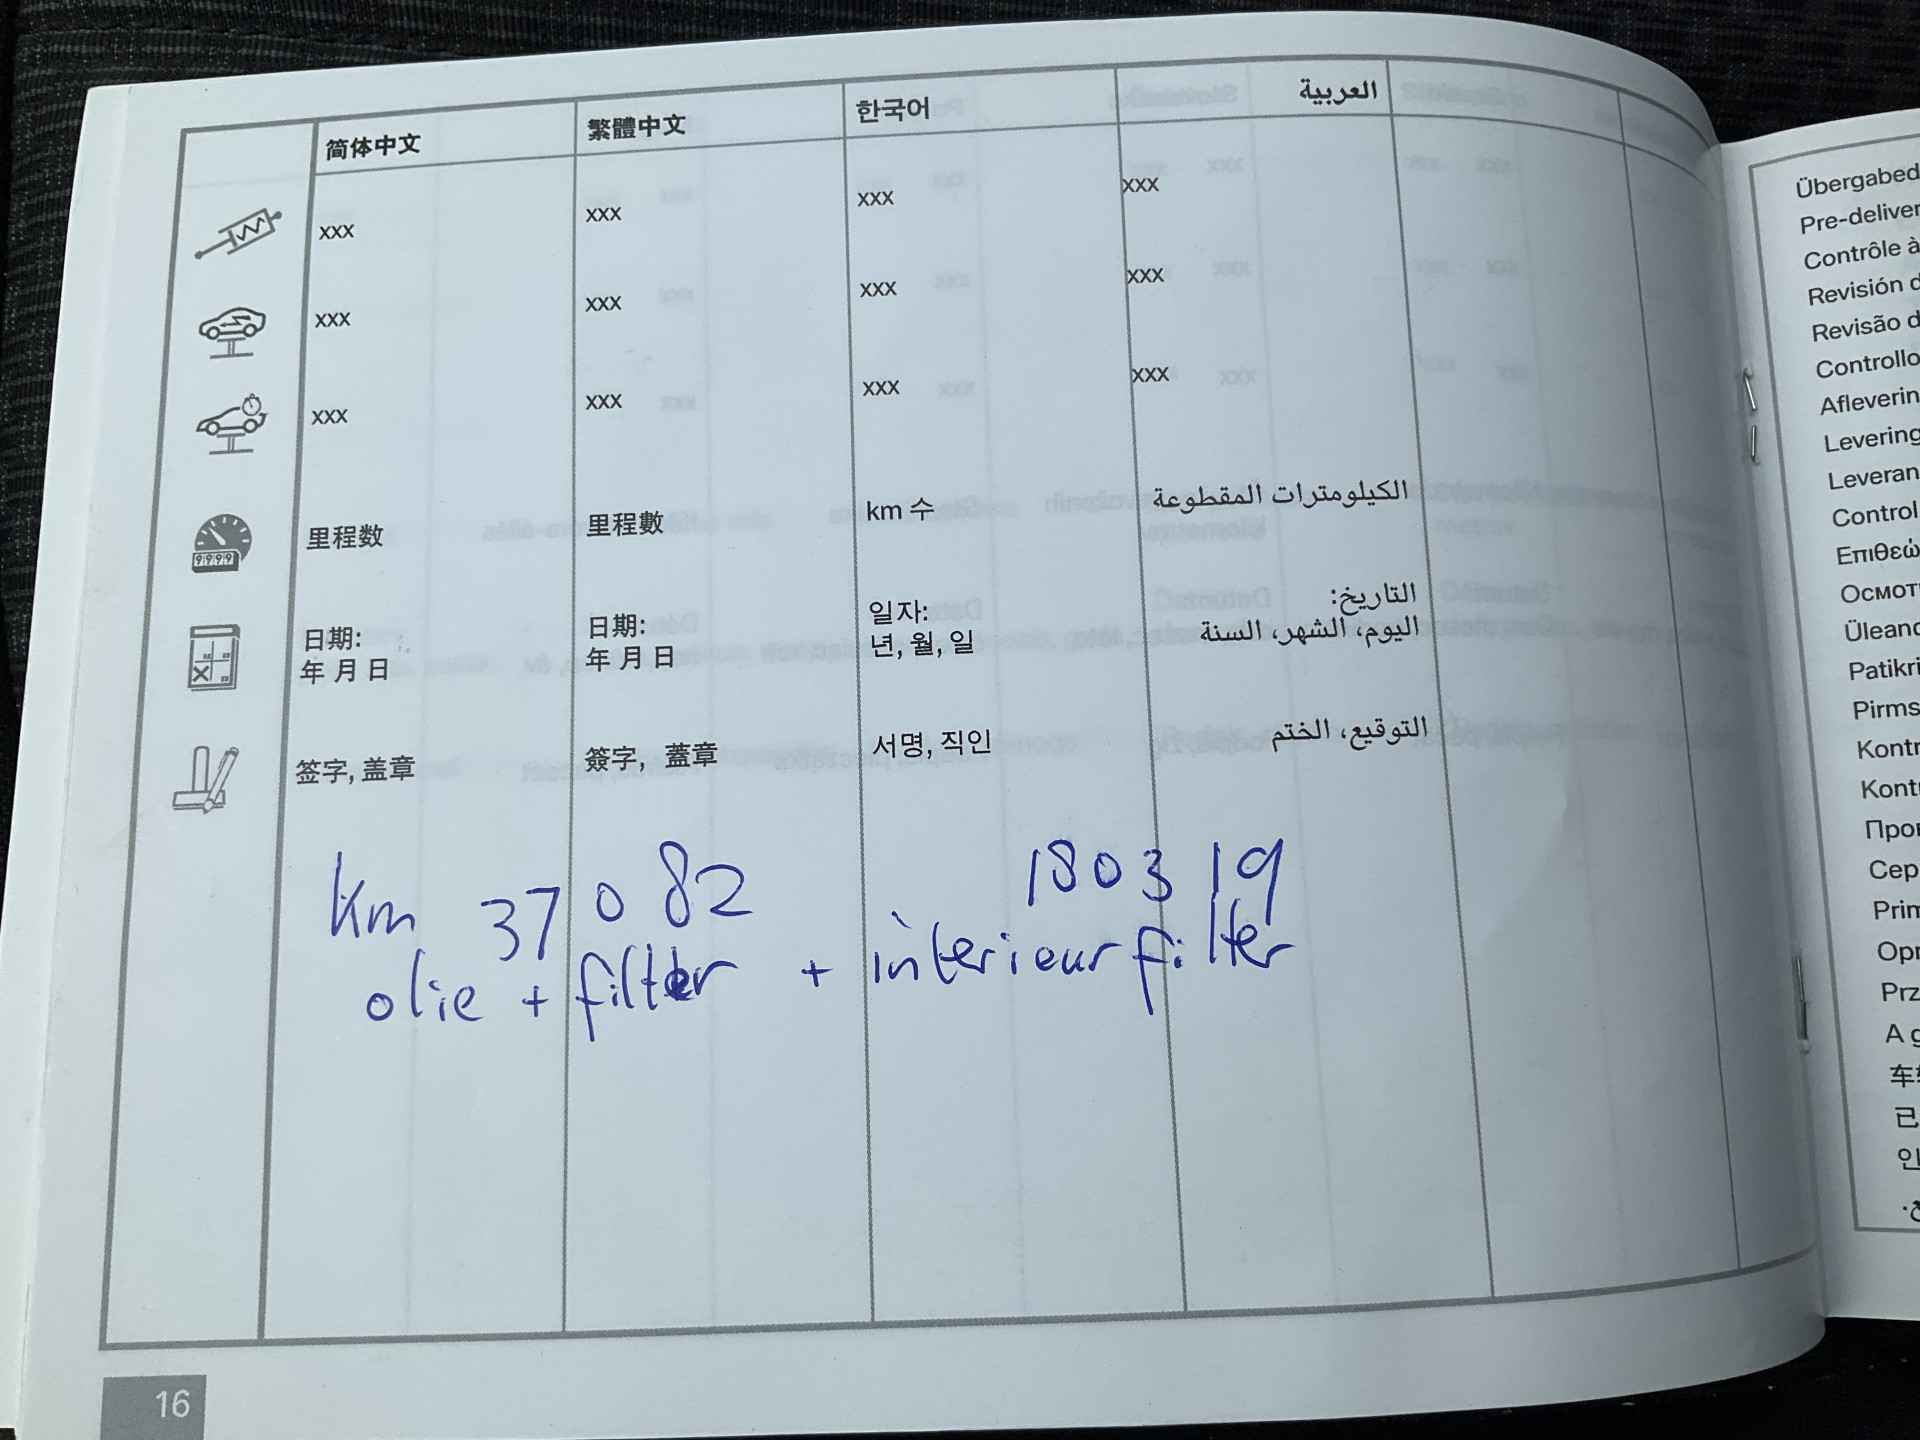 简体中文 繁體中文 한국어 العربية
xxx xxx xxx xxx
xxx xxx xxx xxx
xxx xxx xxx xxx
里程数 里程數 km 수 الكيلومترات المقطوعة
日期: 日期: 일자: التاريخ:
年 月 日 年 月 日 년, 월, 일 اليوم، الشهر، السنة
签字, 盖章 簽字, 蓋章 서명, 직인 التوقيع، الختم
km 37082 180319
olie + filter + interieur filter
16
Übergabed
Pre-deliver
Contrôle à
Revisión d
Revisão d
Controllo
Afleverin
Levering
Leveran
Control
Επιθεώ
Осмот
Üleand
Patikri
Pirms
Kontr
Kont
Про
Сер
Prim
Opr
Prz
A g
已